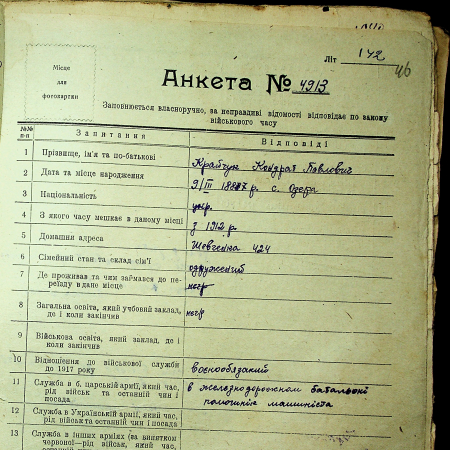 Літ 142
46
Місце
для
фотокартки
Анкета № 4913
Заповнюється власноручно, за неправдиві відомості відповідає по закону
військового часу
№№
п-п
Запитання
Відповіді
1 Прізвище, ім'я та по-батькові
Крайчук Кондрат Павлович
2 Дата та місце народження
9/III 1887 р. с. Озера
3 Національність
укр.
4 З якого часу мешкає в даному місці
з 1912 р.
5 Домашня адреса
Шевченка 424
6 Сімейний стан та склад сім'ї
одружений
7 Де проживав та чим займався до пе-
реїзду в дане місце
8 Загальна освіта, який учбовий заклад,
де і коли закінчив
9 Військова освіта, який заклад, де і
коли закінчив
10 Відношення до військової служби
до 1917 року
военообязаний
11 Служба в б. царській армії, який час,
рід військ та останній чин і
посада
в железнодорожном батальоні
помошнік машиніста
12 Служба в Українській армії, який час,
рід військ та останній чин і посада
13 Служба в інших арміях (ва винятком
червоної—рід військ, який час,